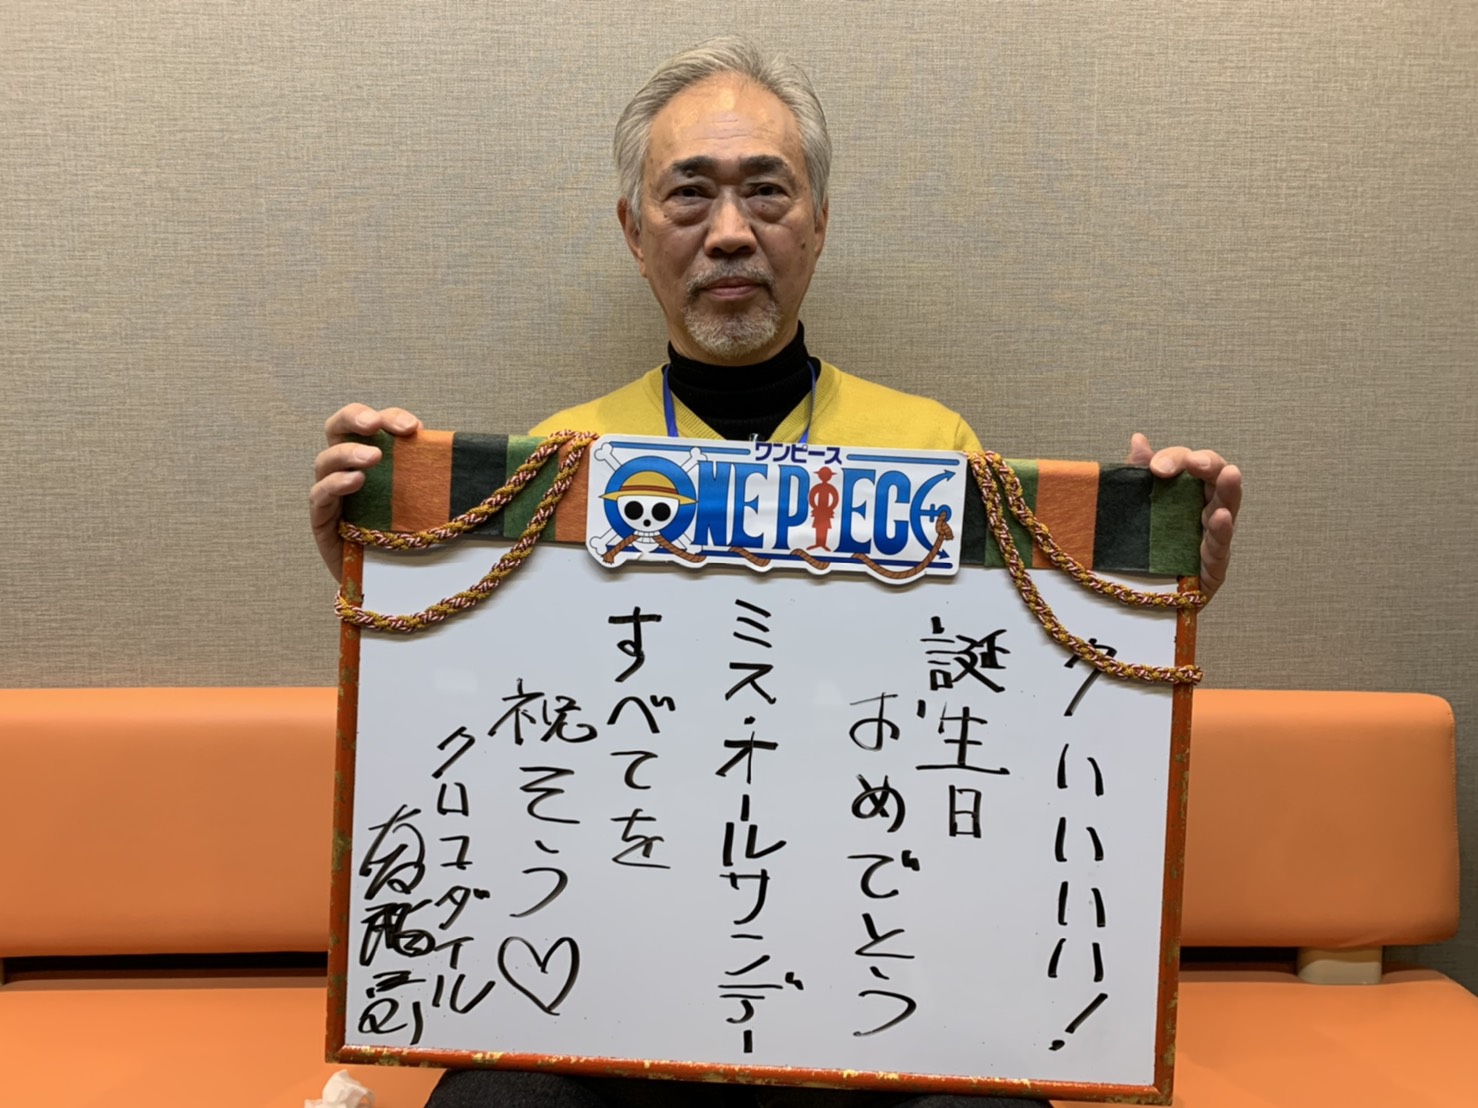 ワンピース
ONE PIECE
クハハハハ!
誕生日
おめでとう
ミス・オールサンデー
すべてを
祝そう♡
クロコダイル